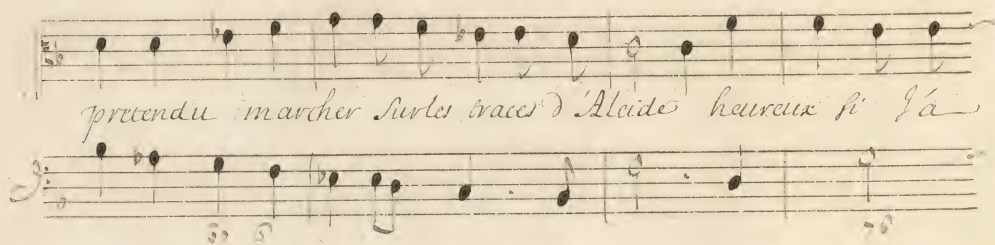 pretendu marcher sur les traces d'Alcide heureux si j'a